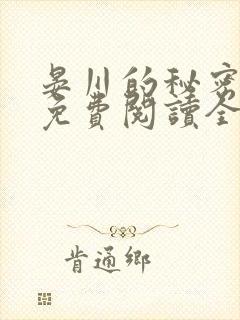 晏川的秘密
免費閱讀全
肯通鄉